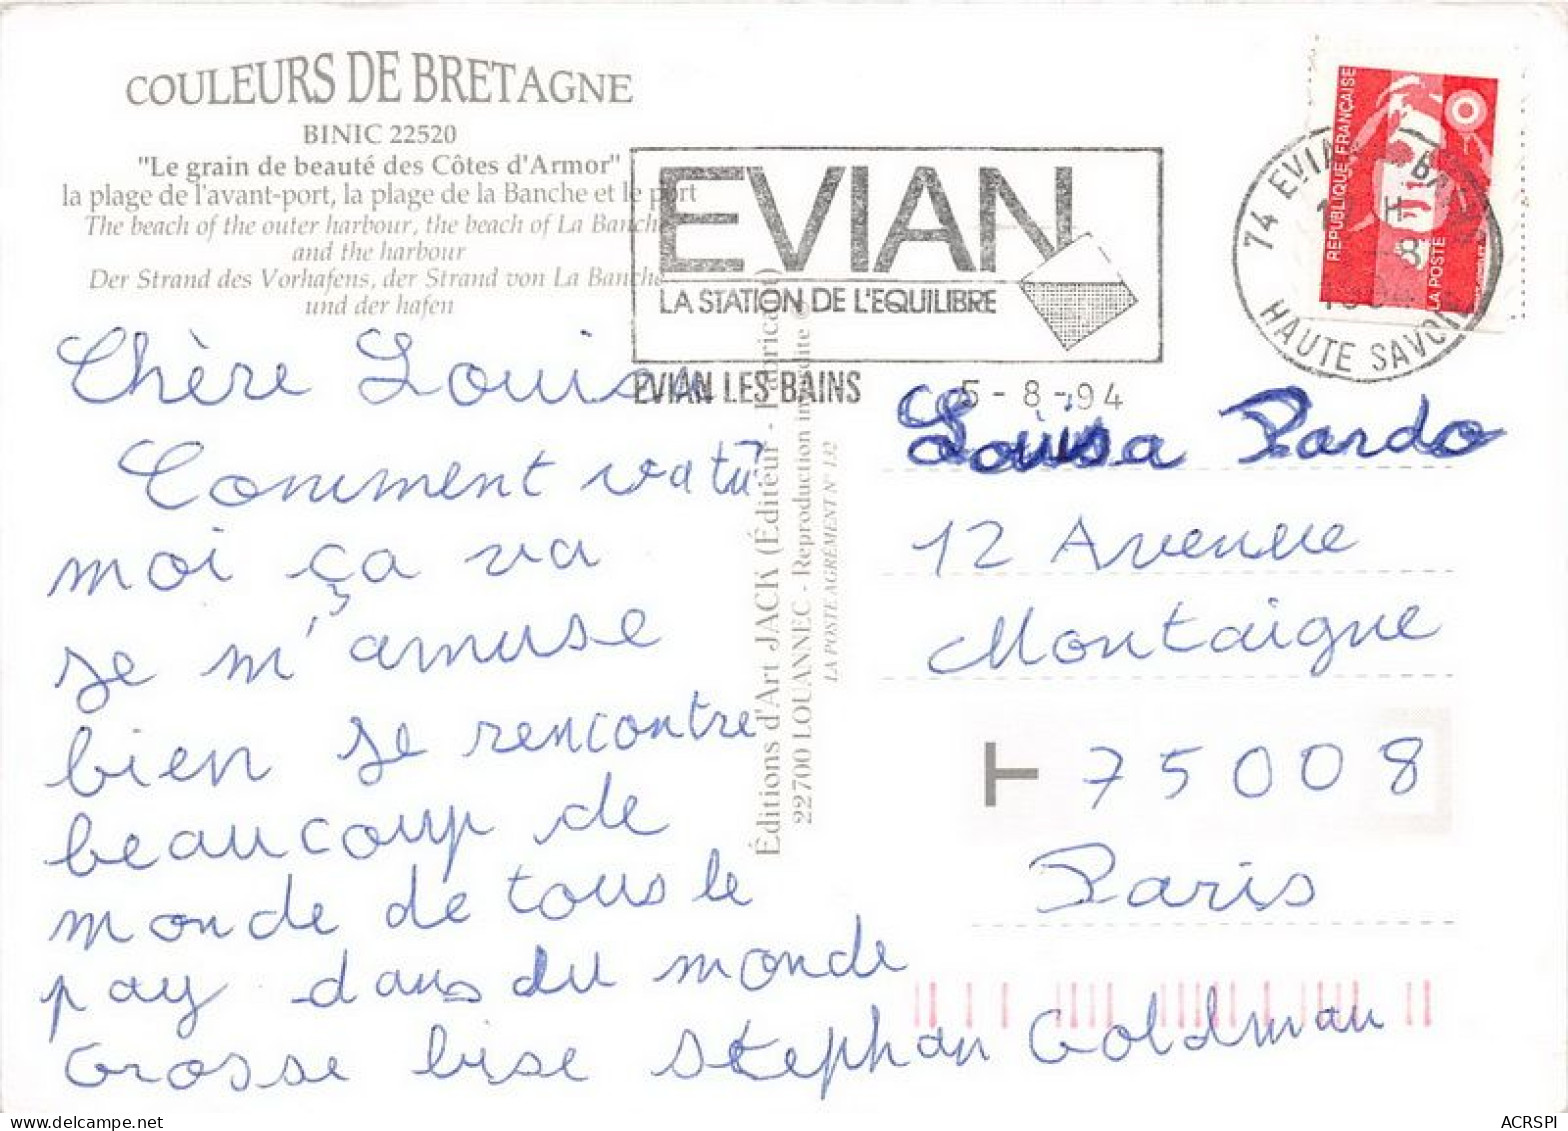 COULEURS DE BRETAGNE
BINIC 22520
"Le grain de beauté des Côtes d'Armor"
la plage de l'avant-port, la plage de la Banche et le port
The beach of the outer harbour, the beach of La Banche
and the harbour
Der Strand des Vorhafens, der Strand von La Banche
und der hafen
EVIAN
LA STATION DE L'EQUILIBRE
EVIAN LES BAINS 5-8-94
74 EVIAN BAINS
HAUTE SAVOIE
REPUBLIQUE FRANÇAISE
LA POSTE
Chère Louisa
Comment va tu?
moi ça va
je m'amuse
bien je rencontre
beaucoup de
monde de tous le
pay dans du monde
Grosse bise Stephan Goldman
Éditions d'Art JACK (Éditeur - Fabricant)
22700 LOUANNEC - Reproduction interdite ©
LA POSTE AGRÉMENT N° 132
Louisa Pardo
12 Avenue
Montaigne
T 75008
Paris
ACRSPI